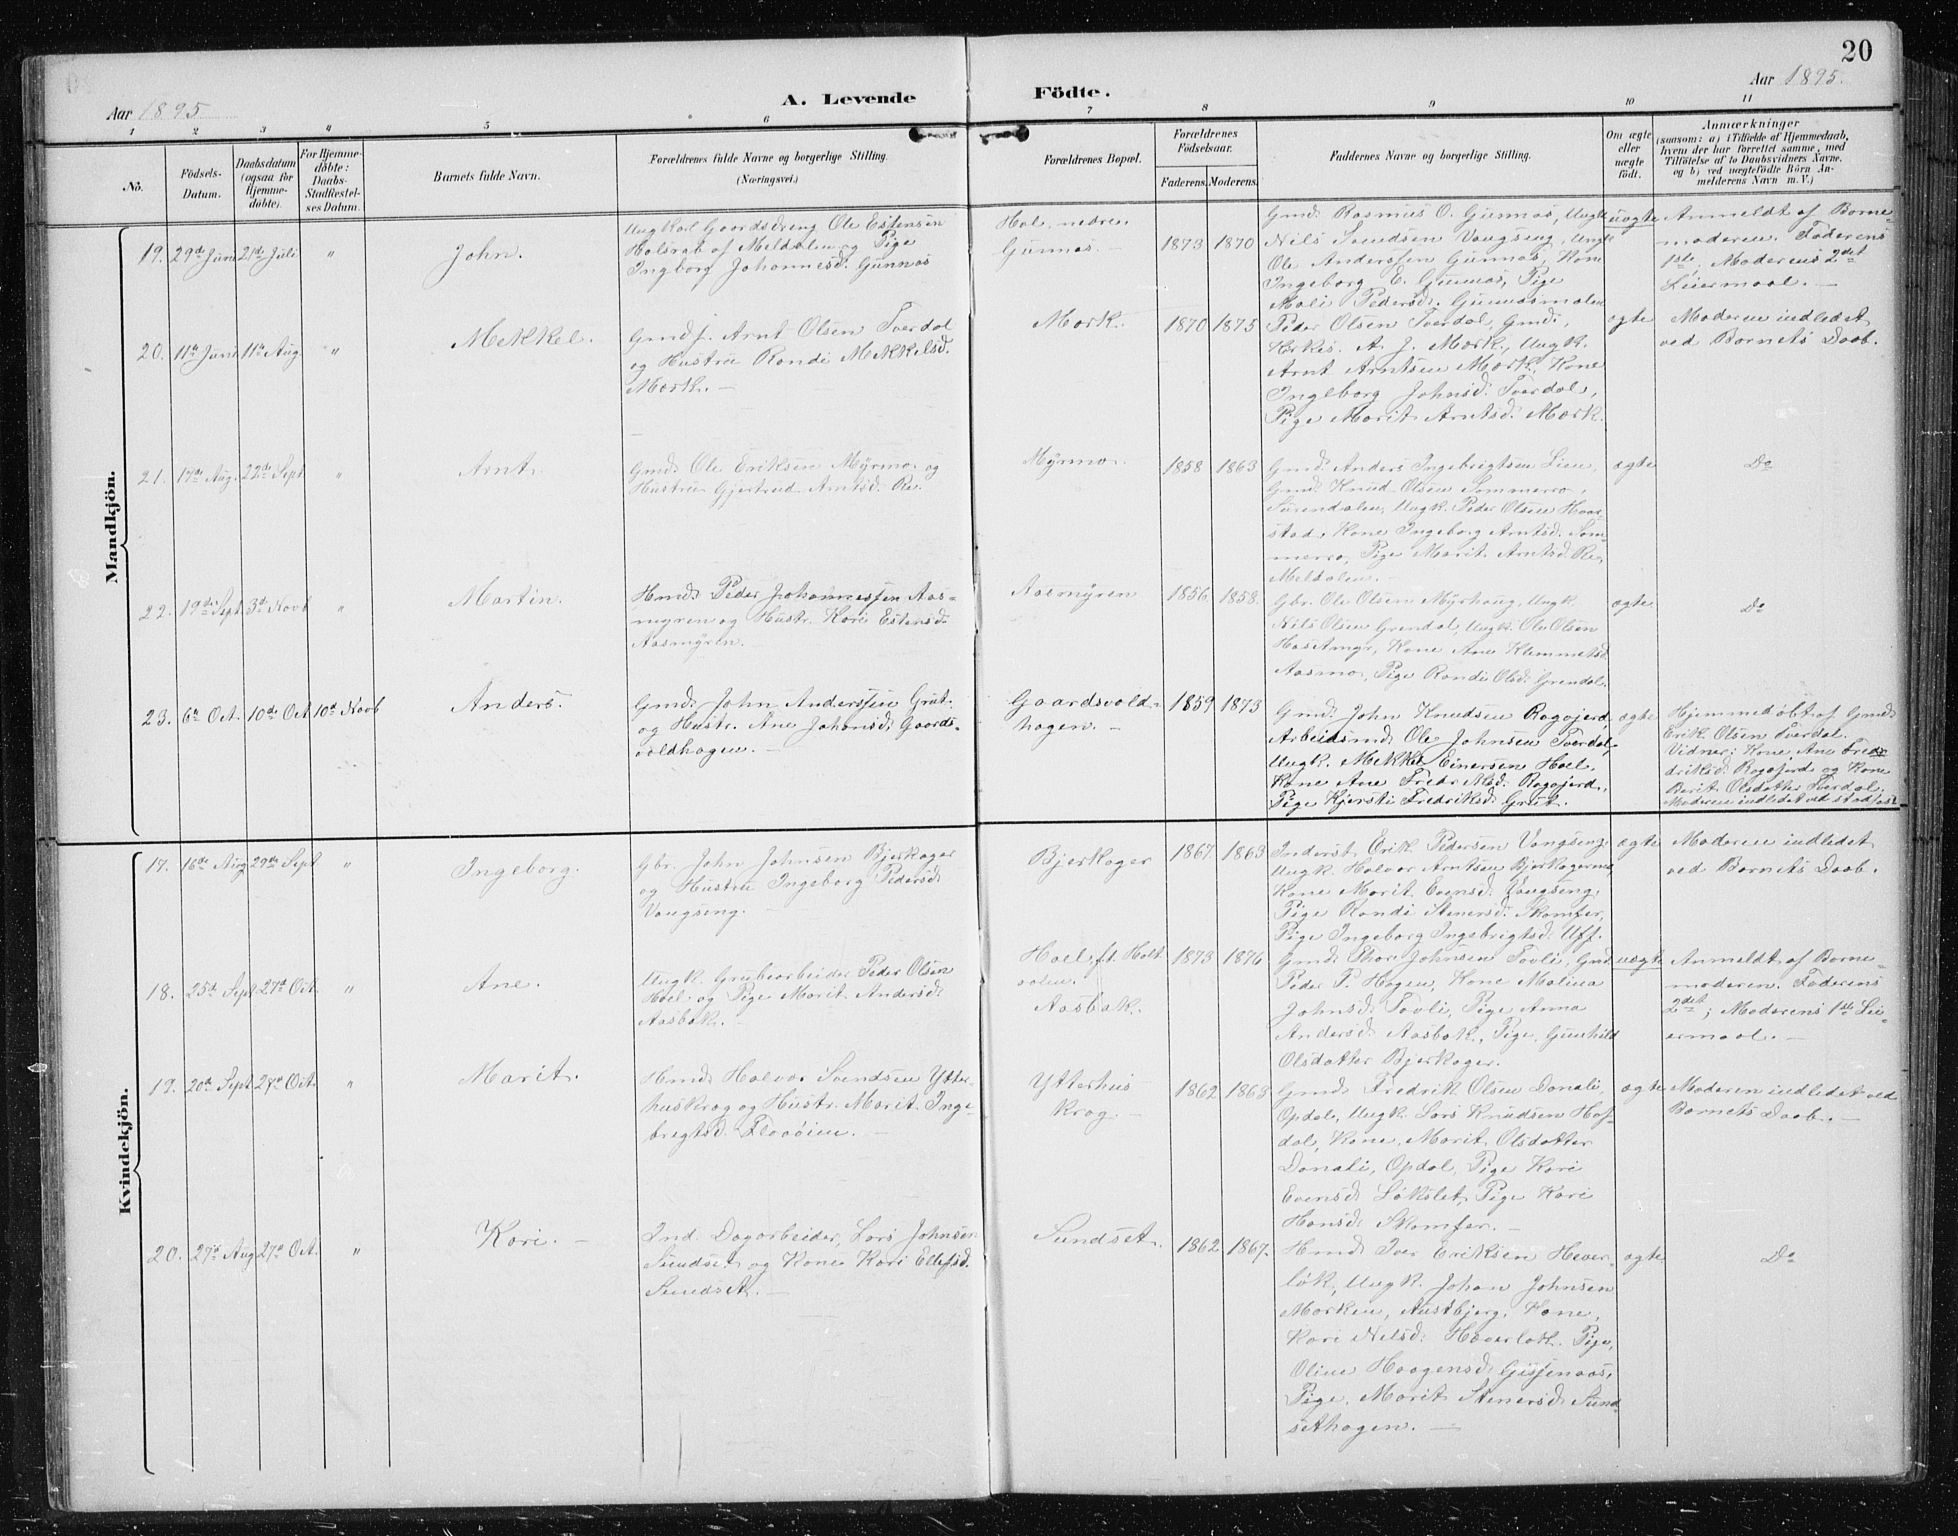 20
Aar 1895.
A. Levende Födte.
Aar 1895.
1 2 3 4 5 6 7 8 9 10 11
No.
Födsels-
Datum.
Daabsdatum
(ogsaa for
Hjemme-
döbte).
For Hjemme-
döbte:
Daabs-
Stadfæstel-
ses Datum.
Barnets fulde Navn.
Forældrenes fulde Navne og borgerlige Stilling.
(Næringsvei.)
Forældrenes Bopæl.
Forældrenes
Födselsaar.
Faderens. Moderens.
Faddernes Navne og borgerlige Stilling.
Om ægte
eller
uægte
födt.
Anmærkninger
(saasom: a) i Tilfælde af Hjemmedaab,
hvem der har forrettet samme, med
Tilföielse af to Daabsvidners Navne,
og b) ved uægtefödte Börn An-
melderens Navn m. V.)
Mandkjön.
19. 29de Juni 21de Juli " John.
Ungkarl Gaardsdreng Ole Estensen
Holsrab af Meldalen og Pige
Ingborg Johannesd. Gunnas
Hol nedre.
Gunnas.
1873 1870
Gmd. Rasmus O. Gunnas, Ungk.
Nils Svendsen Vangseng, Ungk.
Ole Anderssen Gunnas, Kone
Ingeborg E. Gunnas, Pige
Mali Pedersd. Gunnasmalen
uægte
Anmeldt af Barne-
moderen. Faderens
1ste, Moderens 2det
Leiermaal. —
20. 11te Juni 11te Aug. " Mekkel.
Gmdf. Arnt Olsen Tverdal
og Hustru Randi Mekkelsd.
Mork. —
Mork.
1870 1875
Peder Olsen Tverdal, Gmd.,
Kirkes. A. J. Mork, Ungk.
Arnt Arntsen Mork, Kone
Ingeborg Johnsd. Tverdal,
Pige Marit Arntsd. Mork.
ægte
Moderen indledet
ved Barnets Daab.
21. 17de Aug. 22de Sept. " Arnt.
Gmd. Ole Eriksen Myrmo og
Hustru Gjertrud Arntsd. Re.
Myrmo.
1858 1863
Gmd. Anders Ingebrigtsen Lien,
Gmd. Knud Olsen Sommerro,
Surendalen, Ungk. Peder Olsen Haar-
stad, Kone Ingeborg Arntsd. Som-
merro, Pige Marit Arntsd. Re,
Meldalen. —
ægte
Do
22. 19de Sept. 3de Novb. " Martin.
Hmd. Peder Johannessen Aas-
myren og Hustr. Kari Estensd.
Aasmyren.
Aasmyren
1856 1858.
Gbr. Ole Olsen Myrhaug, Ungk.
Nils Olsen Grendal, Ungk. Ole Olsen
Hosetmyr, Kone Ane Klemmetsd.
Aasmo, Pige Randi Olsd. Grendal.
ægte
Do
23. 6te Oct. 10de Oct. 10de Novb. Anders.
Gmd. John Anderssen Grut
og Hustr. Ane Johansd. Gaards-
voldhagen. —
Gaardsvold-
hagen. —
1859 1873
Gmd. John Knudsen Ragojerd,
Arbeidsmd. Ole Johnsen Tverdal,
Ungk. Mekkel Einersen Hoel,
Kone Ane Fredriksd. Ragojerd,
Pige Kjersti Fredriksd. Grut.
ægte
Hjemmedöbt af Gmd.
Erik Olsen Tverdal.
Vidner: Kone Ane Fre-
driksd. Ragojerd og Kone
Berit Olsdatter Tverdal.
Moderen indledet ved stadfæst.
Kvindekjön.
17. 16de Aug. 29de Sept. " Ingeborg.
Gbr. John Johnsen Bjerkager
og Hustru Ingeborg Pedersd.
Vangseng. —
Bjerkager
1867. 1863
Inderst Erik Pedersen Vangseng,
Ungk. Halvor Arntsen Bjerkagermo,
Kone Marit Evensd. Vangseng,
Pige Randi Stenersd. Skamfer,
Pige Ingeborg Ingebrigtsd. Uff.
ægte
Moderen indledet
ved Barnets Daab.
18. 25de Sept. 27de Oct. " Ane.
Ungk. Grubearbeider Peder Olsen
Hoel og Pige Marit Andersd.
Aasbak. —
Hoel, ft. Holt-
aalen.
Aasbak.
1873 1876
Gmd. Thore Johnsen Tovli, Gmd.
Peder P. Hagen, Kone Malina
Johnsd. Tovli, Pige Anna
Andersd. Aasbak, Pige Gunhild
Olsdatter Bjerkager.
uægte
Anmeldt af Barne-
moderen. Faderens
2det; Moderens 1ste Lei-
ermaal. —
19. 20de Sept. 27de Oct. " Marit.
Hmd. Halvor Svendsen Ytter-
huskrog og Hustr. Marit Inge-
brigtsd. Flaaöien. —
Ytterhus
krog. —
1862 1863
Gmd. Fredrik Olsen Donali,
Opdal, Ungk. Lars Knudsen Haf-
dal, Kone Marit Olsdatter
Donali, Opdal, Pige Kari
Evensd. Lökslet, Pige Kari
Hansd. Skamfer. —
ægte
Moderen indledet ved
Barnets Daab. —
20. 27de Aug. 27de Oct. " Kari. —
Ind. Dagarbeider, Lars Johnsen
Sundset og Kone Kari Ellefsd.
Sundset. —
Sundset.
1862 1867.
Hmd. Iver Eriksen Hever-
lök, Ungk. Johan Johnsen
Morken, Austbjerg, Kone
Kari Nilsd. Haverlök, Pige
Oline Haagensd. Gisnaas,
Pige Marit Stenersd. Sund-
sethagen. —
ægte
Do